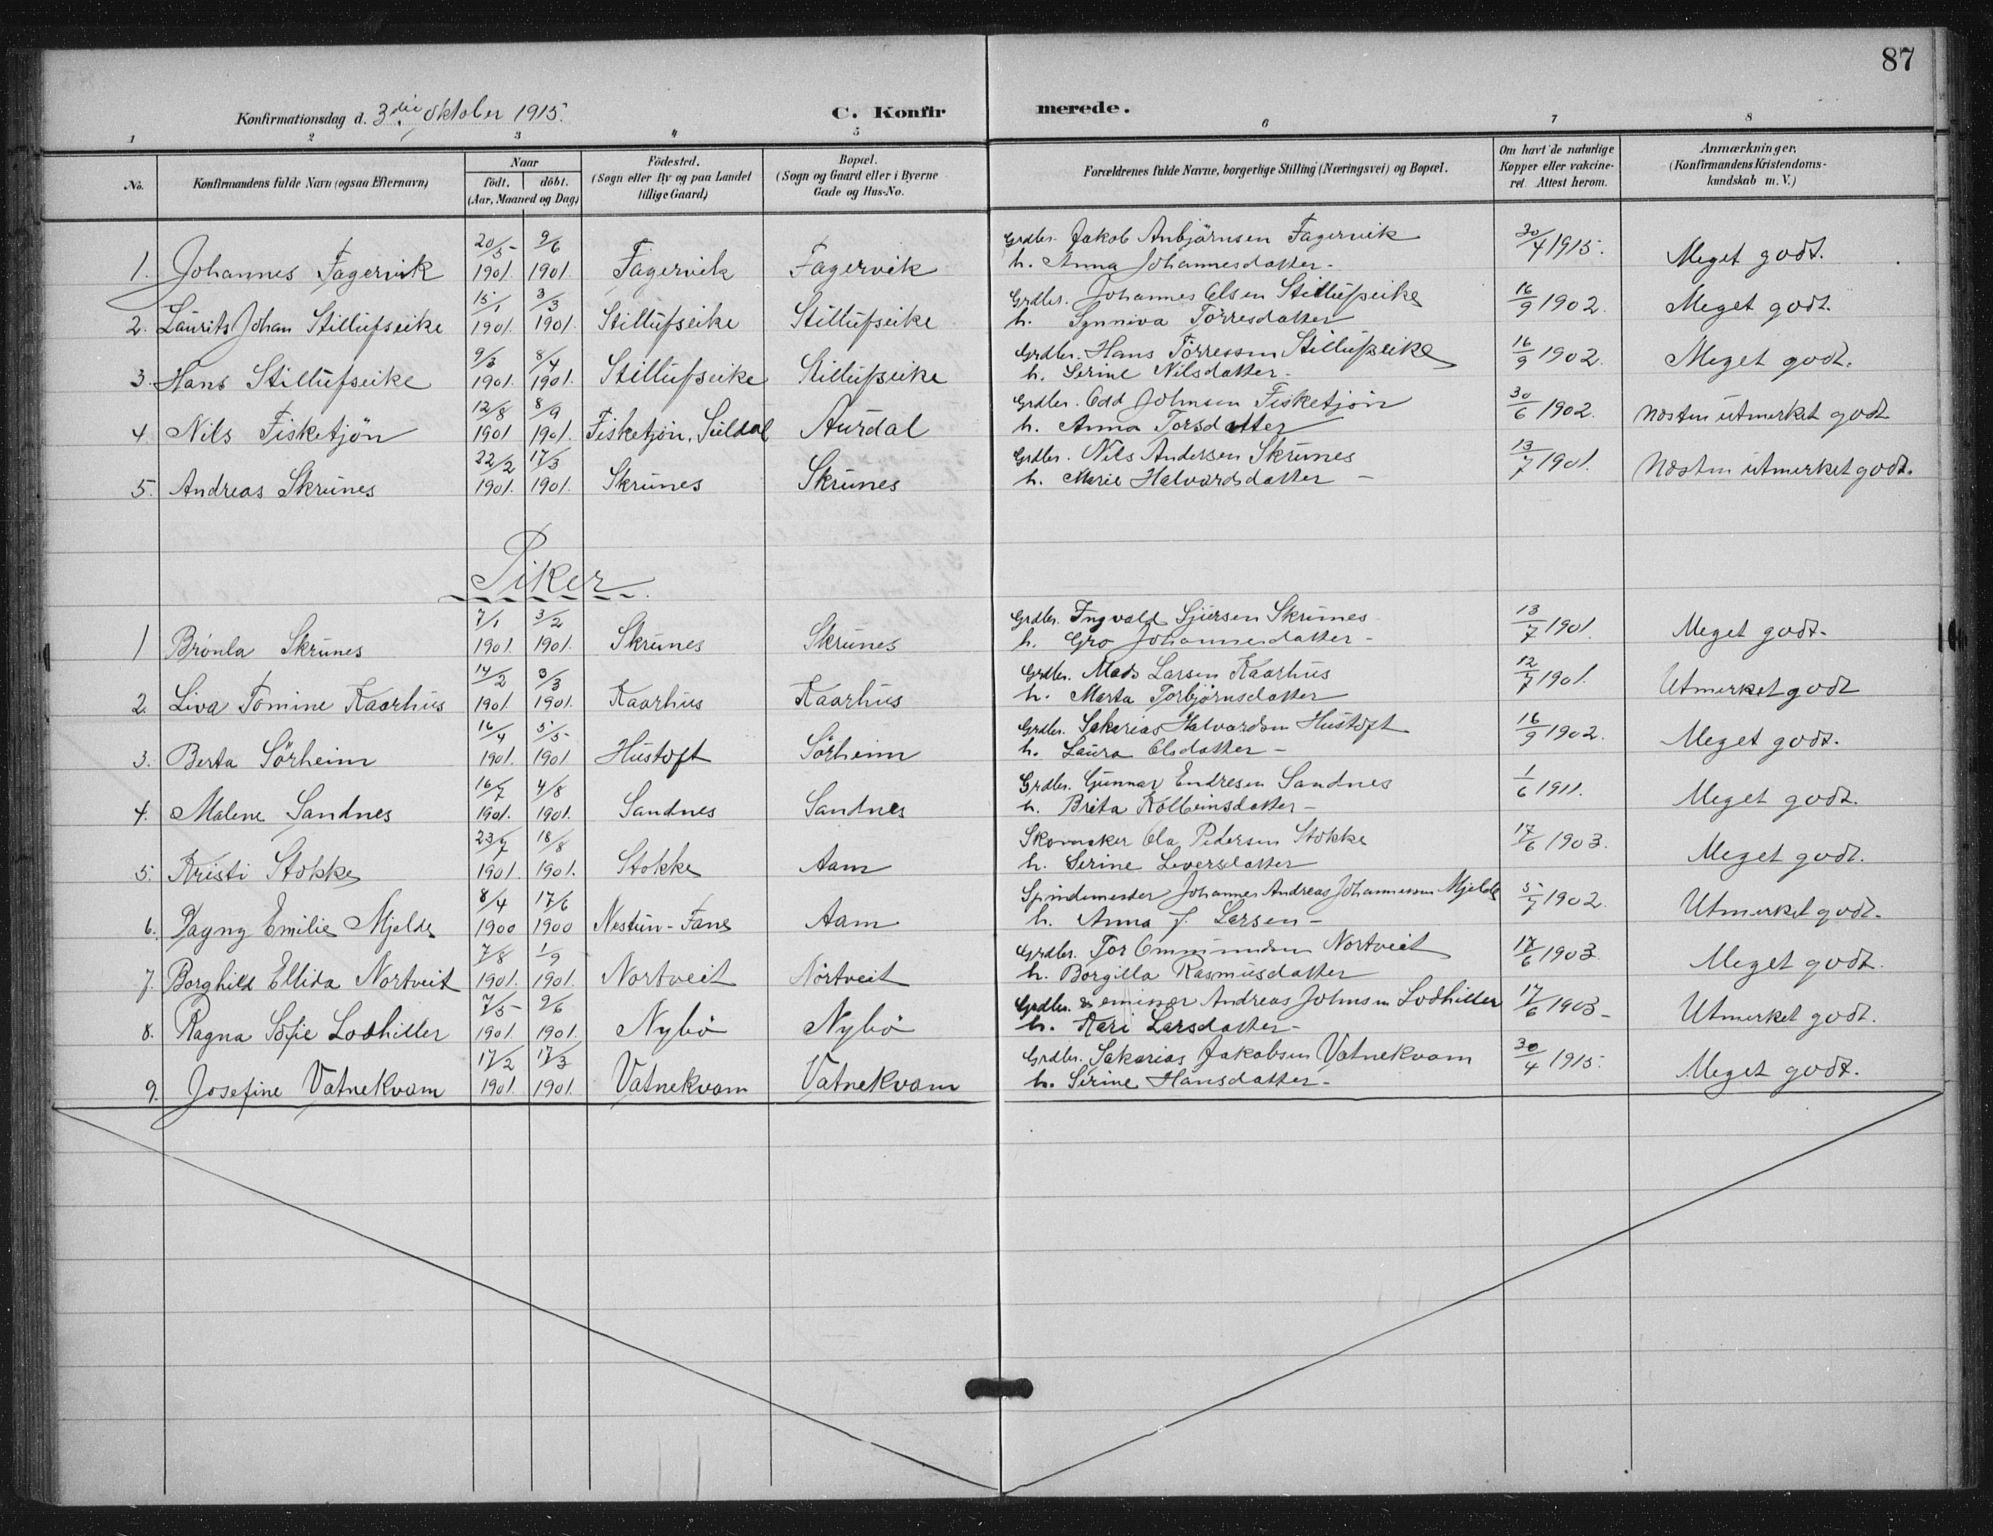 87
Konfirmationsdag d. 3die Oktober 1915. C. Konfirmerede.
1 2 3 4 5 6 7 8
No. Konfirmandens fulde Navn (ogsaa Efternavn) Naar født. døbt. (Aar, Maaned og Dag) Födested. (Sogn eller By og paa Landet tillige Gaard) Bopæl. (Sogn og Gaard eller i Byerne Gade og Hus-No. Forældrenes fulde Navne, borgerlige Stilling (Næringsvei) og Bopæl. Om havt de naturlige Kopper eller vakcineret. Attest herom. Anmærkninger, (Konfirmandens Kristendomskundskab m. V.)
20/5 9/6 Grdbr. Jakob Anbjörnsen Fagervik 30/4 1915.
1. Johannes Fagervik 1901. 1901. Fagervik Fagervik h. Anna Johannesdatter - Meget godt.
15/1 3/3 Grdbr. Johannes Olsen Stillufseike 16/9 1902.
2. Laurits Johan Stillufseike 1901. 1901. Stillufseike Stillufseike h. Synniva Torresdatter Meget godt.
9/3 8/4 Grdbr. Hans Törresson Stillufseike 16/9 1902.
3. Hans Stillufseike 1901. 1901. Stillufseike Stillufseike h. Serine Nilsdatter - Meget godt.
12/8 8/9 Grdbr. Odd Johnsen Fisketjön 30/6 1902.
4 Nils Fisketjön 1901 1901. Fisketjön, Suldal Aurdal h. Anna Torsdatter Næsten utmerket godt
22/2 17/3 Grdbr. Nils Andersen Skrunes 13/7 1901.
5. Andreas Skrunes 1901. 1901. Skrunes Skrunes h. Marie Halvardsdatter - Næsten utmerket godt.
Piker
7/1 3/2 Grdbr. Ingvald Sjursen Skrunes 13/7 1901.
1 Brønla Skrunes 1901. 1901. Skrunes Skrunes h. Gro Johannesdatter - Meget godt.
14/2 3/3 Grdbr. Mads Larsen Kaarhus 12/7 1901.
2. Liva Tomine Kaarhus 1901. 1901. Kaarhus Kaarhus h. Marta Torbjørnsdatter Utmerket godt
16/4 5/5 Grdbr. Sakarias Halvardsen Hustoft 16/9 1902.
3. Berta Sörheim 1901. 1901 Hustoft Sörheim h. Laura Olsdatter - Meget godt.
16/7 4/8 Grdbr. Gunnar Endresen Sandnes 1/6 1911.
4. Malene Sandnes 1901. 1901. Sandnes Sandnes h. Brita Kolbeinsdatter - Meget godt.
23/7 18/8 Skomaker Ola Pedersen Stokke 17/6 1903.
5. Kristi Stokke 1901. 1901. Stokke Aam h. Serine Seversdatter Meget godt.
8/4 17/6 Spindemester Johannes Andreas Johannessen Mjelde 5/7 1902.
6. Dagny Emilie Mjelde 1900 1900 Nestun - Fane Aam h. Anna J. Larsen - Utmerket godt.
7/8 1/9 Grdbr. Tor Ommundsen Nortveit 17/6 1903
7. Borghild Ellida Nortveit 1901. 1901. Nortveit Nörtveit h. Borgilla Rasmusdatter Meget godt.
7/5 9/6 Grdbr. & emissær Andreas Johnsen Lodhiller 17/6 1903 -
8. Ragna Sofie Lodhiller 1901. 1901. Nybö Nybö h. Kari Larsdatter - Utmerket godt.
17/2 17/3 Grdbr. Sakarias Jakobsen Vatnekvam 30/4 1915.
9. Josefine Vatnekvam 1901. 1901. Vatnekvam Vatnekvam h. Serine Hansdatter - Meget godt.